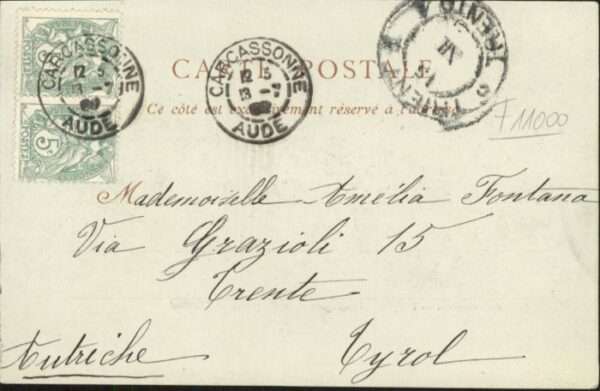 CARCASSONNE
12 5
13 -7
AUDE
CARCASSONNE
12 5
13 -7
AUDE
CARTE POSTALE
Ce côté est exclusivement réservé à
5
POSTES
F 11000
Mademoiselle Amélia Fontana
Via Grazioli 15
Trente
Autriche Tyrol